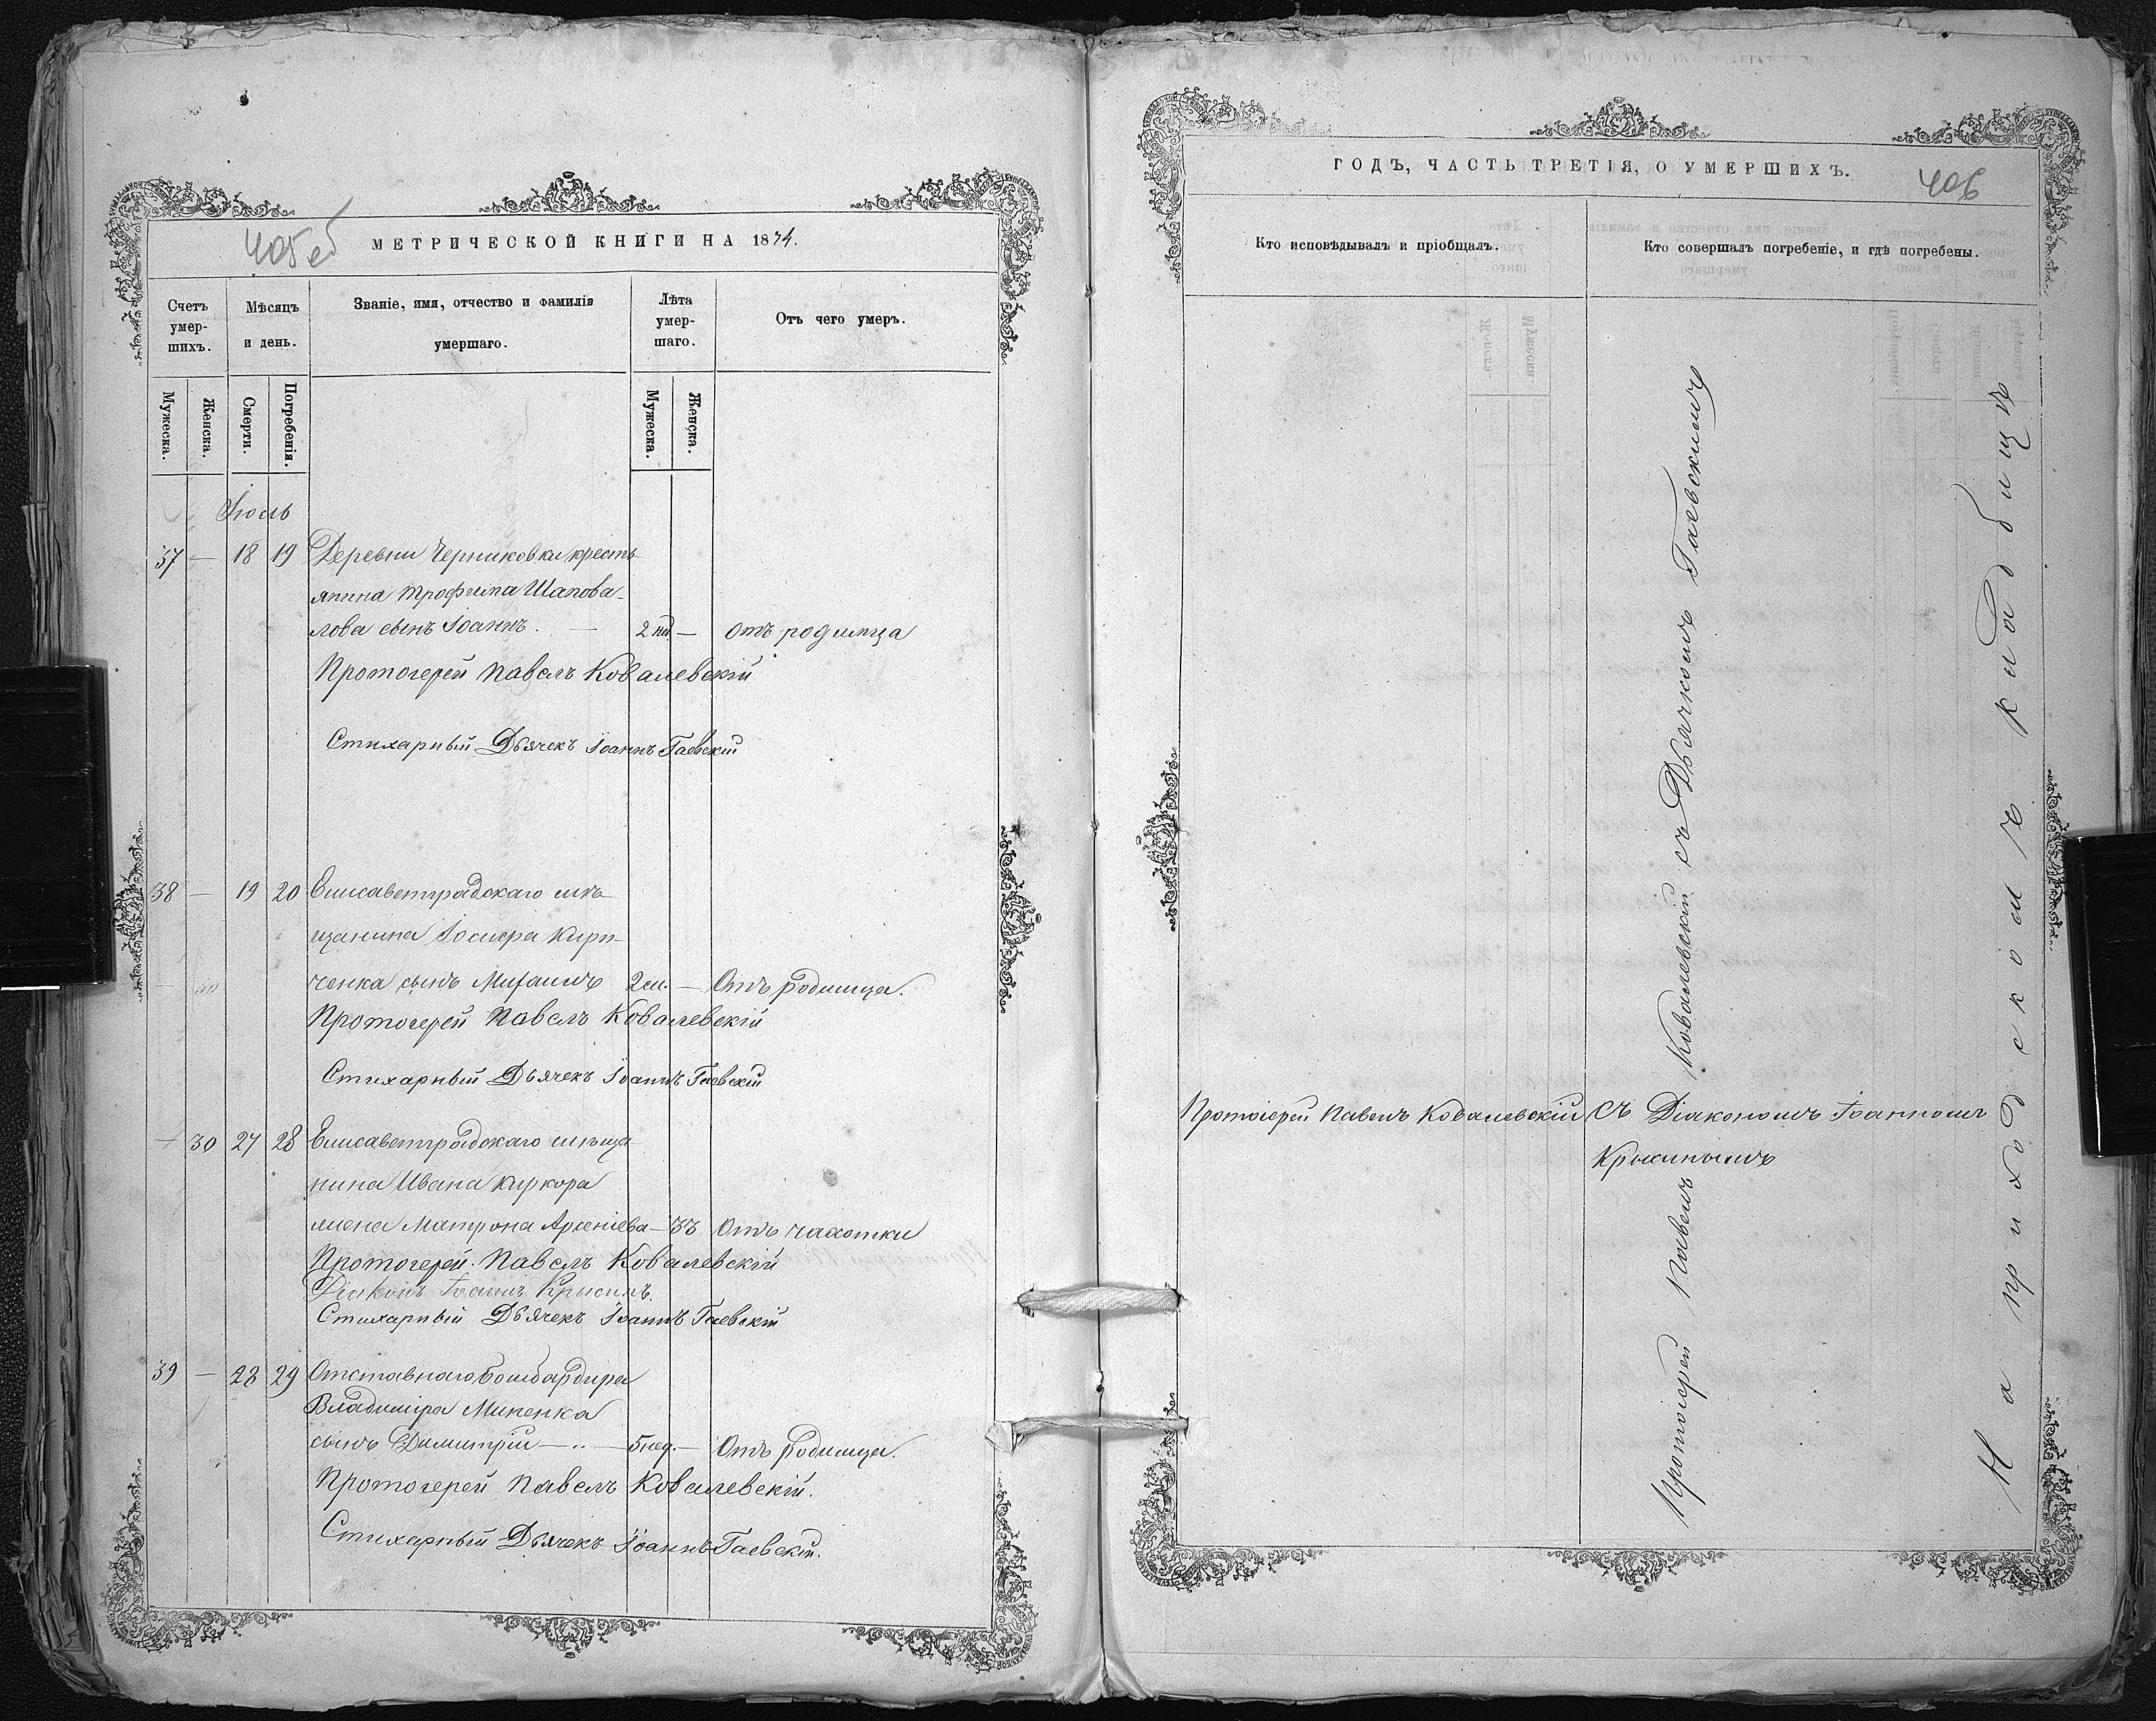 405об
МЕТРИЧЕСКОЙ КНИГИ НА 1874.
Счетъ умер-шихъ.
Мѣсяцъ и день.
Званіе, имя, отчество и фамилія умершаго.
Лѣта умер-шаго.
Отъ чего умеръ.
Мужеска.
Женска.
Смерти.
Погребенія.
Мужеска.
Женска.
Іюль
37 — 18 19 Деревни Черниковки кресть
янина Трофима Шапова-
лова сынъ Іоаннъ. — 2 нд. — отъ родимца
Протоіерей Павелъ Ковалевскій
Стихарный Дьячекъ Іоаннъ Гаевскій
38 — 19 20 Елисаветградскаго мѣ-
щанина Іосифа Кири-
ченка сынъ Михаилъ 2 м. — Отъ родимца.
Протоіерей Павелъ Ковалевскій
Стихарный Дьячекъ Іоаннъ Гаевскій
— 30 27 28 Елисаветградскаго мѣща
нина Ивана Киркора
жена Матрона Арсеніева — 33 Отъ чахотки
Протоіерей Павелъ Ковалевскій
Діаконъ Іоаннъ Крысинъ.
Стихарный Дьячекъ Іоаннъ Гаевскій
39 — 28 29 Отставнаго бомбардира
Владиміра Миненка
сынъ Димитрій — 5 нед. — Отъ родимца.
Протоіерей Павелъ Ковалевскій.
Стихарный Дьячекъ Іоаннъ Гаевскій.
ГОДЪ, ЧАСТЬ ТРЕТІЯ, О УМЕРШИХЪ.
406
Кто исповѣдывалъ и пріобщалъ.
Кто совершалъ погребеніе, и гдѣ погребены.
Протоіерей Павелъ Ковалевскій съ Діакономъ Іоанномъ
Крысинымъ
Протоіерей Павелъ Ковалевскій съ Дьячкомъ Гаевскимъ
На приходскомъ кладбищѣ